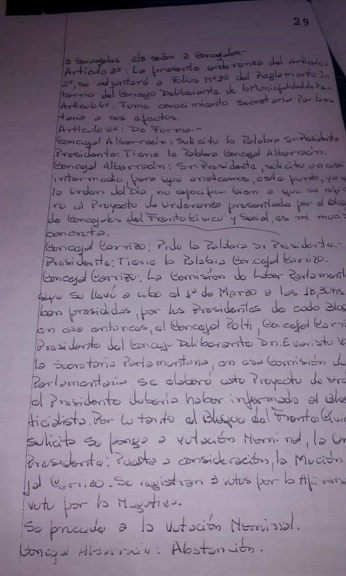 29
3 Concejales 2do seán 2 Concejales-
Artículo 3º: La presente ordenanza del Artículo
2º, se adjuntará a Folios Nº 38 del Reglamento In
terno del Concejo Deliberante de la Municipalidad de
Artículo 4º: Tome conocimiento Secretaría Parlamen
taria a sus efectos.
Artículo 5º: De Forma.-
Concejal Albarracín: Solicito la Palabra Sr Presidente
Presidente: Tiene la Palabra Concejal Albarracín.
Concejal Albarracín: Sr. Presidente, solicito un cuarto
intermedio, para que analicemos, este punto, ya que
la Orden del Día, no especifica bien a que se refie
re al Proyecto de Ordenanza presentado por el Bloque
de Concejales del Frente Cívico y Social, es muy
concreta.
Concejal Carrizo: Pido la Palabra Sr Presidente.-
Presidente: Tiene la Palabra Concejal Carrizo.
Concejal Carrizo: La Comisión de Labor Parlament
que se llevó a cabo el 1º de Marzo a las 18,30hs
ban presididas, por los Presidentes de cada Bloq
en ese entonces, el Concejal Polti, Concejal Carri
Presidente del Concejo Deliberante Dn. Evaristo V
la Secretaria Parlamentaria, en esa Comisión de
Parlamentaria se elaboró este Proyecto de Ord
el Presidente debería haber informado al Bloq
ticialista. Por lo tanto el Bloque del Frente Cívic
solicita se ponga a votación Nominal, la Or
Presidente: Puesta a consideración, la Moción
jal Carrizo. Se registran 3 votos por la Afirma
voto por la Negativa.
Se procede a la Votación Nominal.
Concejal Albarracín: Abstención.